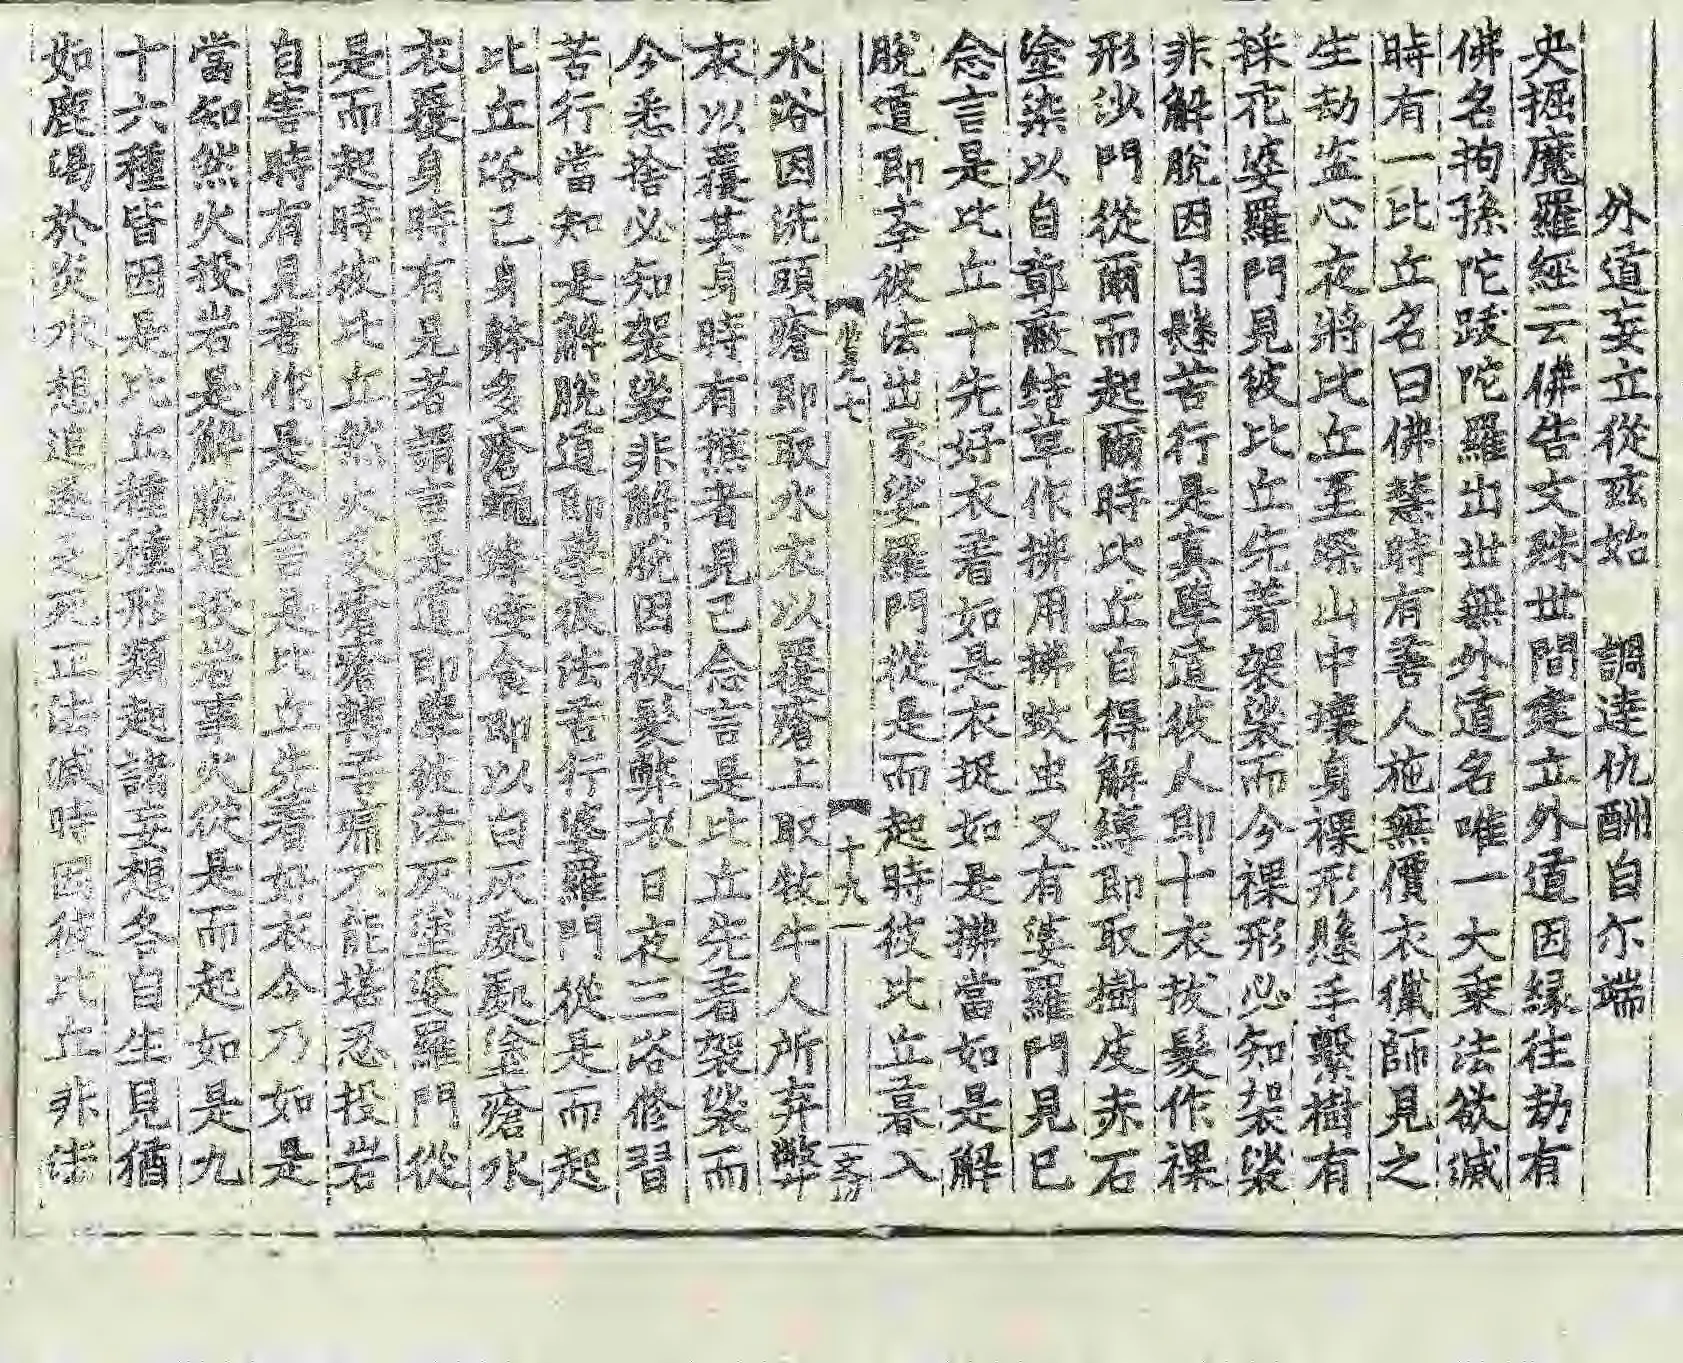 外道妄立從兹始　調達仇酬自尒端
央掘魔羅經云佛告文殊世間建立外道因縁往劫有
佛名拘孫陀跋陀羅出世無外道名唯一大乘法欲滅
時有一比丘名曰佛慧時有善人施無價衣獵師見之
生劫盜心夜將比丘至深山中壞身裸形懸手繫樹有
採花婆羅門見彼比丘先著袈裟而今裸形必知袈裟
非解脫因自懸苦行是真學道彼人即十衣拔髮作裸
形沙門從爾而起爾時比丘自得解縛即取樹皮赤石
塗染以自鄣蔽结草作拂用拂蚊虫又有婆羅門見已
念言是比丘十先好衣著如是衣捉如是拂當如是解
脫道即斈彼法出家婆羅門從是而起時彼比丘暮入
十九
水浴因洗頭瘡即取水衣以覆瘡上取牧牛人所弃弊
衣以覆其身時有樵者見已念言是比丘先著袈裟而
今悉捨必知袈裟非解脫因披髮弊衣日夜三浴修習
苦行當知是解脫道即學彼法苦行婆羅門從是而起
比丘浴已身體多瘡蝿蜂唼食即以白灰處處塗瘡水
衣覆身時有見者謂言是道即學彼法灰塗婆羅門從
是而起時彼比丘然火炙瘡瘡轉苦痛不能堪忍投岩
自害時有見者作是念言是比丘先著好衣今乃如是
當知然火投岩是解脫道投岩事火從是而起如是九
十六種皆因是比丘種種形類起諸妄想各自生見猶
如鹿渴於炎水想追逐之死正法滅時因彼比丘非法